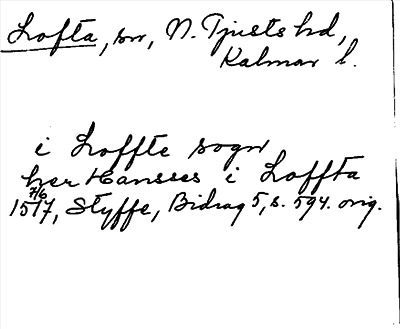 Lofta, sn, N. Tjusts hd,
Kalmar l.
i Loffte sogn
her Hansses i Loffta
7/6
1517, Styffe, Bidrag 5, s. 594. orig.